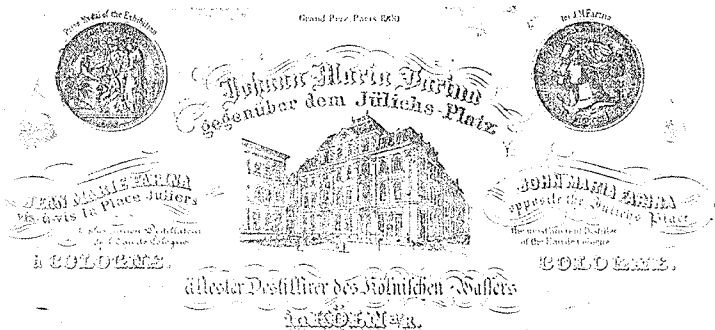 Prize Medal of the Exhibition
Grand Prix, Paris
for J.M.Farina
Johann Maria Farina
gegenüber dem Jülichs-Platz
JEAN MARIE FARINA
vis-à-vis la Place Juliers
le plus ancien Distillateur
de l'Eau de Cologne
à COLOGNE.
JOHN MARIA FARINA
opposite the Juliers Place
the most ancient Distiller
of the Eau de Cologne
COLOGNE.
ältester Destillirer des Kölnischen Wassers
in KÖLN a/R.